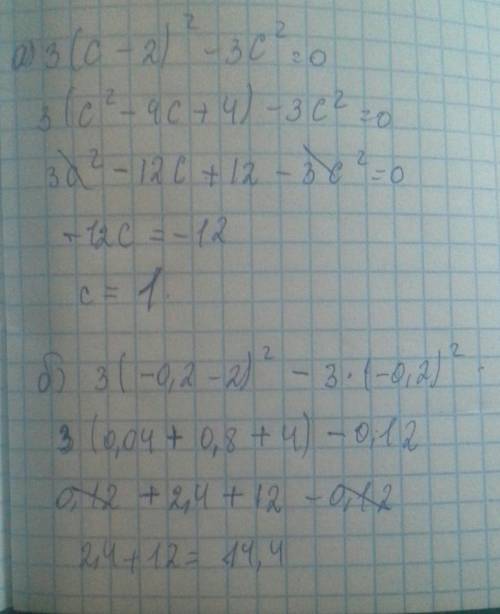 а) 3(c - 2)² - 3c² = 0
3(c² - 4c + 4) - 3c² = 0
3c² - 12c + 12 - 3c² = 0
-12c = -12
c = 1.
б) 3(-0,2 - 2)² - 3·(-0,2)²
3(0,04 + 0,8 + 4) - 0,12
0,12 + 2,4 + 12 - 0,12
2,4 + 12 = 14,4